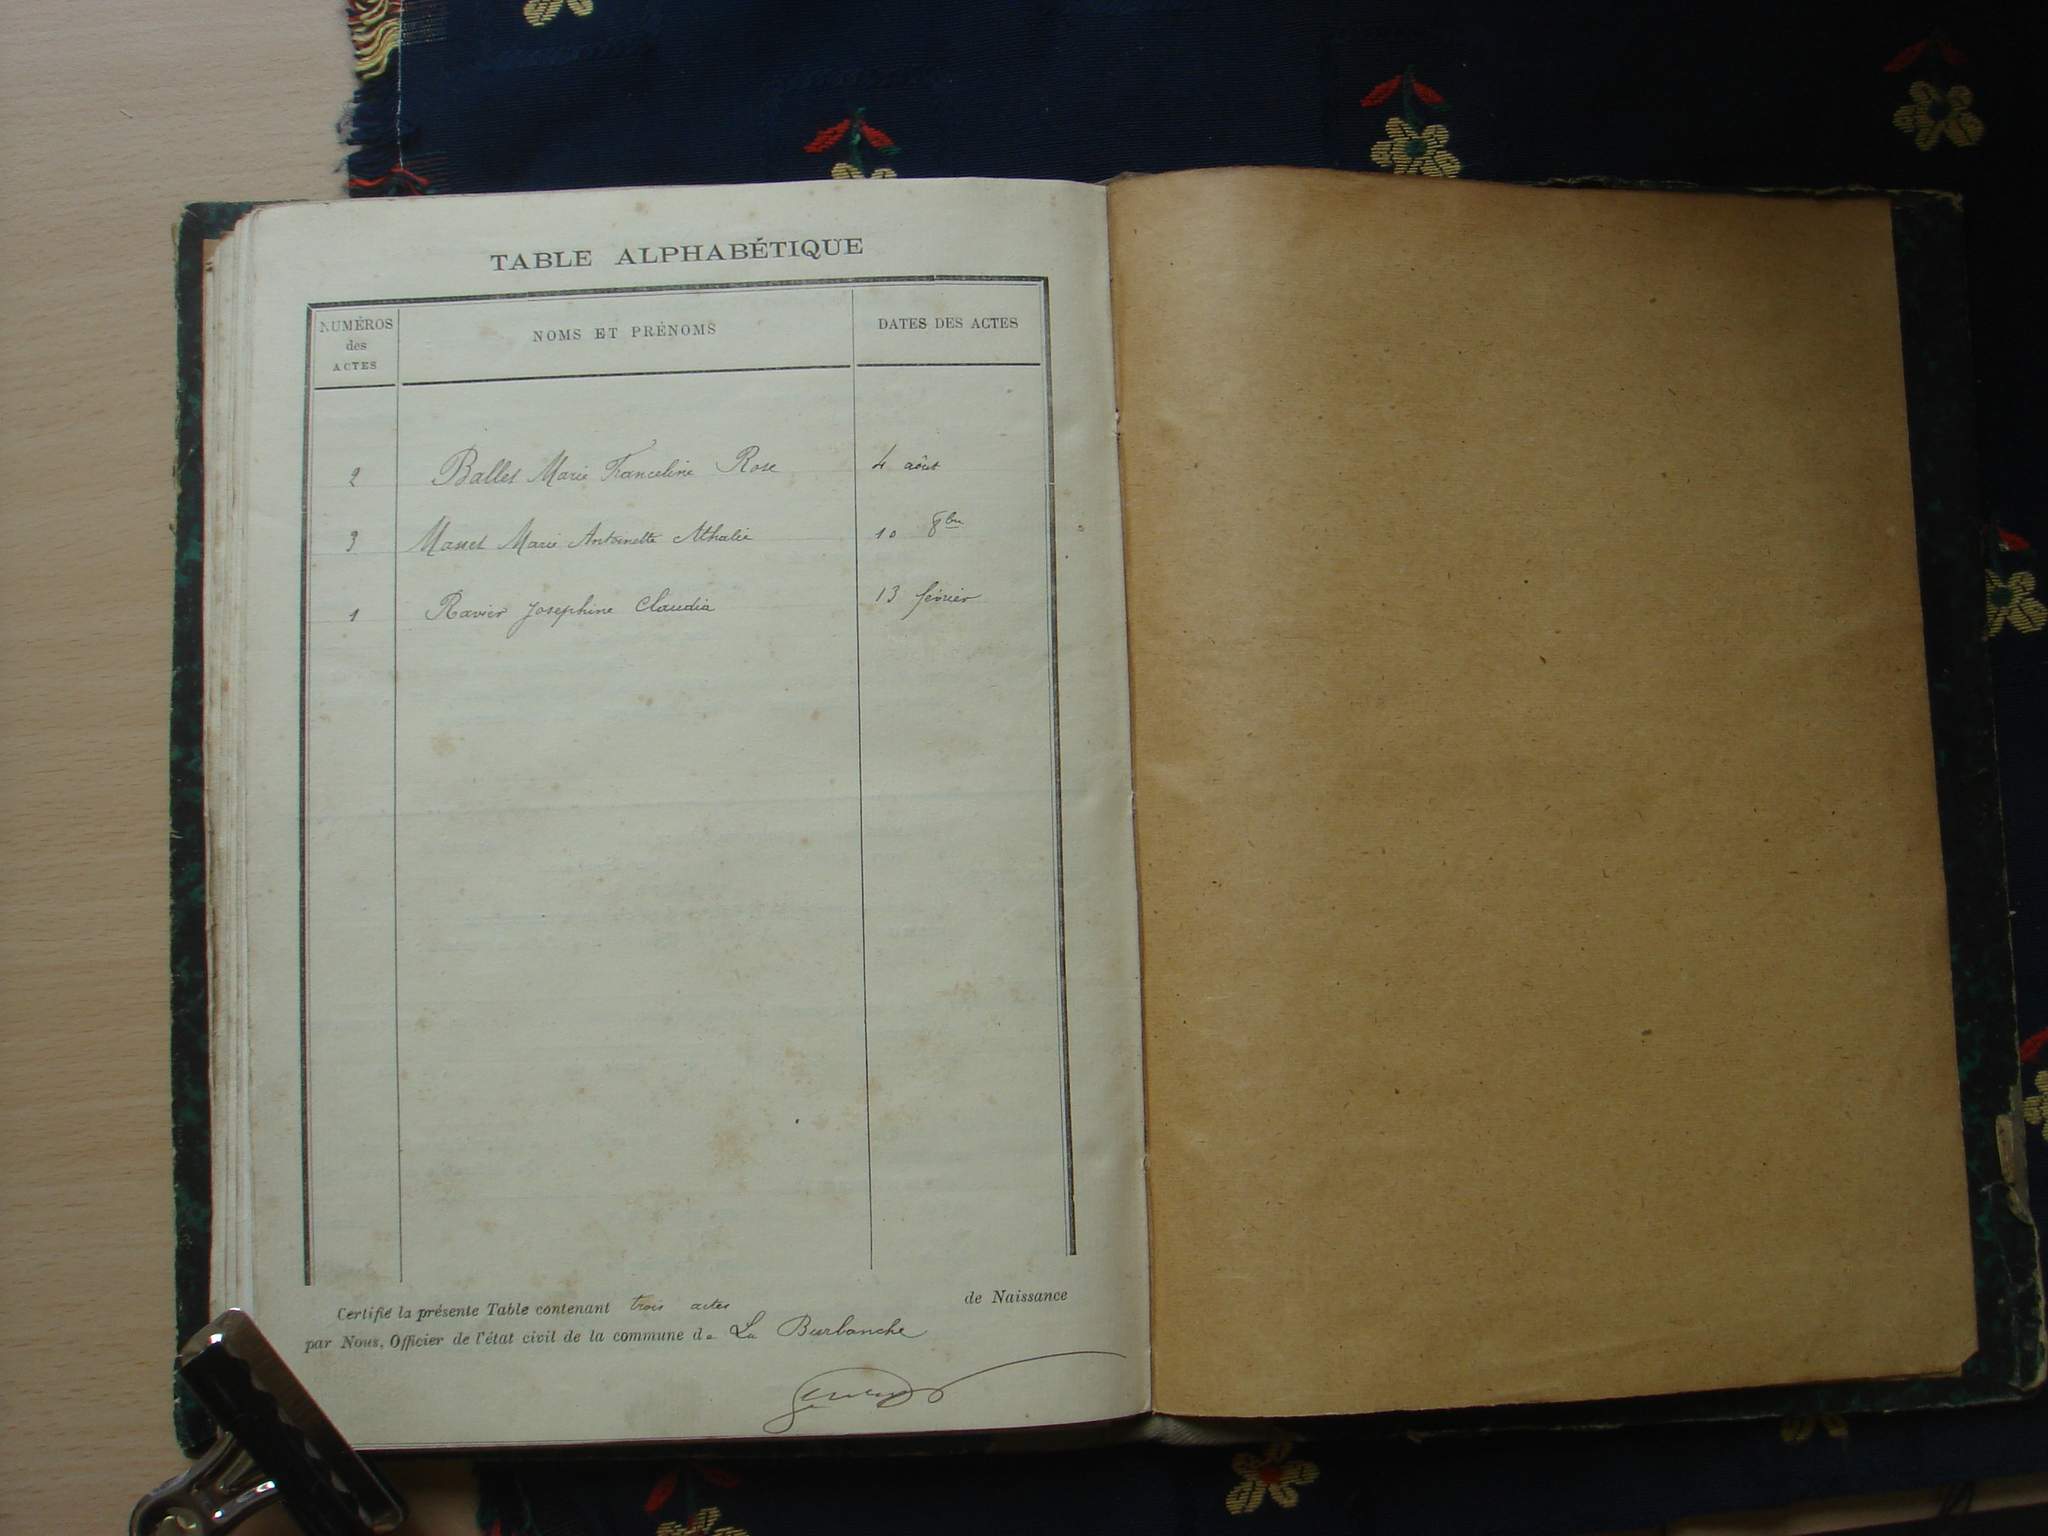 TABLE ALPHABÉTIQUE
NUMÉROS
des
ACTES
NOMS ET PRÉNOMS
DATES DES ACTES
2 Ballet Marie Franceline Rose 4 août
3 Marie Antoinette Athalie 10 8bre
1 Ravier Josephine Claudia 13 février
Certifié la présente Table contenant trois actes de Naissance
par Nous, Officier de l'état civil de la commune de La Burbanche